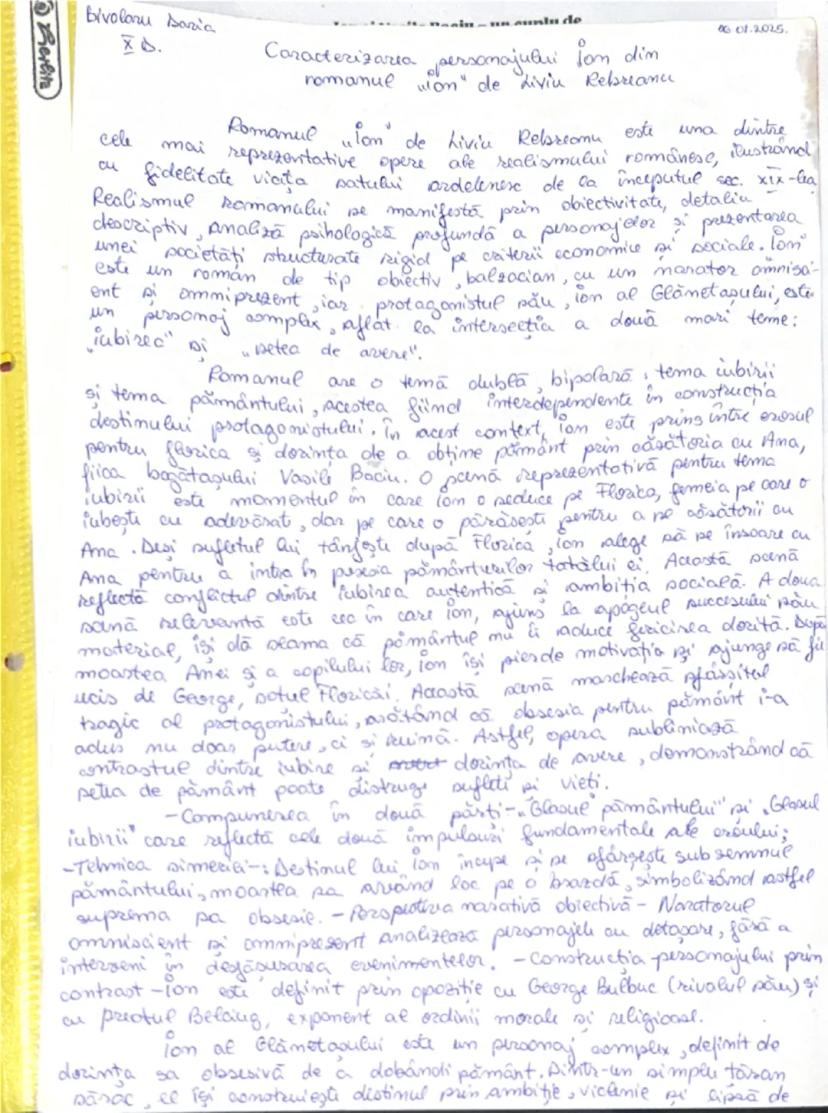 Bivolaru Daria
X D.
06.01.2025.
Berlitz
Caracterizarea personajului Ion din
romanul "Ion" de Liviu Rebreanu
Romanul "Ion" de Liviu Rebreanu este una dintre
cele mai reprezentative opere ale realismului românesc, ilustrând
cu fidelitate viața satului ardelenesc de la începutul sec. XIX-lea.
Realismul romanului se manifestă prin obiectivitate, detaliu
descriptiv, analiză psihologică profundă a personajelor și prezentarea
unei societăți structurate rigid pe criterii economice și sociale. "Ion"
este un român de tip obiectiv, balzacian, cu un narator omnisci-
ent și omniprezent, iar protagonistul său, Ion al Glanetașului, este
un personaj complex, aflat la intersecția a două mari teme:
"iubirea" și "setea de avere".
Romanul are o temă dublă, bipolară: tema iubirii
și tema pământului, acestea fiind interdependente în construcția
destinului protagonistului. În acest context, Ion este prins între erosul
pentru Florica și dorința de a obține pământ prin căsătoria cu Ana,
fiica bogătașului Vasile Baciu. O scenă reprezentativă pentru tema
iubirii este momentul în care Ion o seduce pe Florica, femeia pe care o
iubește cu adevărat, dar pe care o părăsește pentru a se căsătorii cu
Ana. Deși sufletul lui tânjește după Florica, Ion alege să se însoare cu
Ana pentru a intra în posesia pământurilor tatălui ei. Această scenă
reflectă conflictul dintre iubirea autentică și ambiția socială. A doua
scenă relevantă este cea în care Ion, ajuns la apogeul succesului său
material, își dă seama că pământul nu îi aduce fericirea dorită. După
moartea Anei și a copilului lor, Ion își pierde motivația și ajunge să fie
ucis de George, soțul Floricăi. Această scenă marchează sfârșitul
tragic al protagonistului, arătând că obsesia pentru pământ i-a
adus nu doar putere, ci și ruină. Astfel, opera subliniază
contrastul dintre iubire și dorința de avere, demonstrând că
setea de pământ poate distruge suflete și vieți.
-Compunerea în două părți-"Glasul pământului" și "Glasul
iubirii" care reflectă cele două impulsuri fundamentale ale eroului;
-Tehnica simetriei-: Destinul lui Ion începe și se sfârșește sub semnul
pământului, moartea sa având loc pe o brazdă, simbolizând astfel
suprema sa obsesie. -Perspectiva narativă obiectivă- Naratorul
omniscient și omniprezent analizează personajele cu detașare, fără a
interveni în desfășurarea evenimentelor. -Construcția personajului prin
contrast-Ion este definit prin opoziție cu George Bulbuc (rivalul său) și
cu preotul Belciug, exponent al ordinii morale și religioase.
Ion al Glanetașului este un personaj complex, definit de
dorința sa obsesivă de a dobândi pământ. Dintr-un simplu țăran
sărac, el își construiește destinul prin ambiție, viclenie și lipsă de